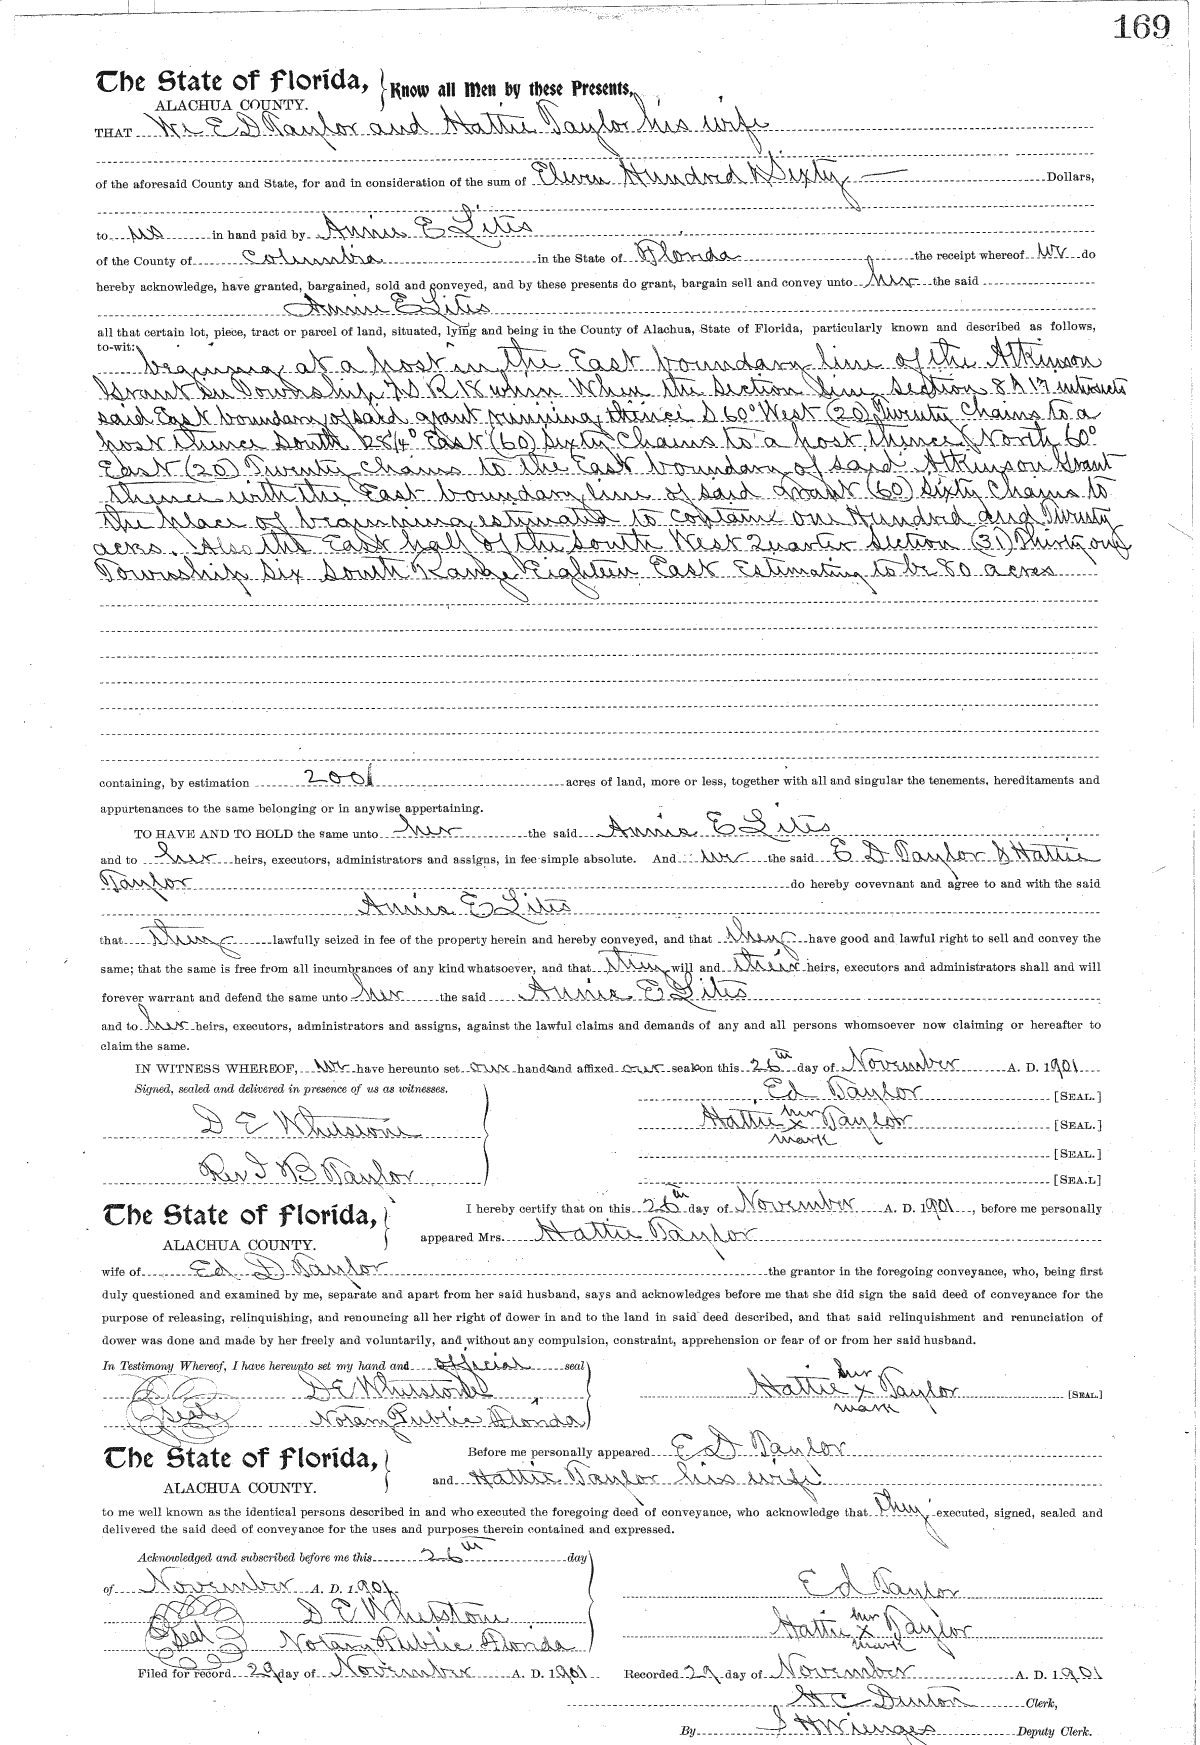 169
The State of Florida, Know all Men by these Presents,
ALACHUA COUNTY.
THAT We E D Taylor and Hattie Taylor his wife
of the aforesaid County and State, for and in consideration of the sum of Eleven Hundred & Sixty Dollars,
to us in hand paid by Annie E Lites
of the County of Columbia in the State of Florida the receipt whereof we do
hereby acknowledge, have granted, bargained, sold and conveyed, and by these presents do grant, bargain sell and convey unto her the said
Annie E Lites
all that certain lot, piece, tract or parcel of land, situated, lying and being in the County of Alachua, State of Florida, particularly known and described as follows,
to-wit:
beginning at a post in the East boundary line of the Atkinson
Grant in Township R 18 When the Section line Section 8 & 17 intersects
said East boundary of said grant running thence S 60° West (20) Twenty Chains to a
post thence South East (60) Sixty Chains to a post thence North 60°
East (20) Twenty Chains to the East boundary of said Atkinson Grant
thence with the East boundary line of said grant (60) Sixty Chains to
the place of beginning estimated to contain one Hundred and Twenty
acres. Also the East half of the South West Quarter Section (31) Thirty one
Township Six South Range Eighteen East Estimating to be 80 acres
containing, by estimation 200 acres of land, more or less, together with all and singular the tenements, hereditaments and
appurtenances to the same belonging or in anywise appertaining.
TO HAVE AND TO HOLD the same unto her the said Annie E Lites
and to her heirs, executors, administrators and assigns, in fee simple absolute. And we the said E D Taylor & Hattie
Taylor do hereby covevnant and agree to and with the said
Annie E Lites
that they lawfully seized in fee of the property herein and hereby conveyed, and that they have good and lawful right to sell and convey the
same; that the same is free from all incumbrances of any kind whatsoever, and that they will and their heirs, executors and administrators shall and will
forever warrant and defend the same unto her the said Annie E Lites
and to her heirs, executors, administrators and assigns, against the lawful claims and demands of any and all persons whomsoever now claiming or hereafter to
claim the same.
IN WITNESS WHEREOF, we have hereunto set our hands and affixed our seals on this 26th day of November A. D. 1901
Signed, sealed and delivered in presence of us as witnesses. Ed Taylor [SEAL.]
D E Whetstone Hattie her x mark Taylor [SEAL.]
[SEAL.]
Rev I B Taylor [SEA.L]
The State of Florida, I hereby certify that on this 26th day of November A. D. 1901, before me personally
ALACHUA COUNTY. appeared Mrs. Hattie Taylor
wife of Ed D Taylor the grantor in the foregoing conveyance, who, being first
duly questioned and examined by me, separate and apart from her said husband, says and acknowledges before me that she did sign the said deed of conveyance for the
purpose of releasing, relinquishing, and renouncing all her right of dower in and to the land in said deed described, and that said relinquishment and renunciation of
dower was done and made by her freely and voluntarily, and without any compulsion, constraint, apprehension or fear of or from her said husband.
In Testimony Whereof, I have hereunto set my hand and official seal
D E Whetstone Hattie her x mark Taylor [SEAL.]
Seal Notary Public Florida
The State of Florida, Before me personally appeared E D Taylor
ALACHUA COUNTY. and Hattie Taylor his wife
to me well known as the identical persons described in and who executed the foregoing deed of conveyance, who acknowledge that they executed, signed, sealed and
delivered the said deed of conveyance for the uses and purposes therein contained and expressed.
Acknowledged and subscribed before me this 26th day
of November A. D. 1901. Ed Taylor
D E Whetstone Hattie her x mark Taylor
Seal Notary Public Florida
Filed for record 29 day of November A. D. 1901 Recorded 29 day of November A. D. 1901
H C Denton Clerk,
By S H Wienges Deputy Clerk.